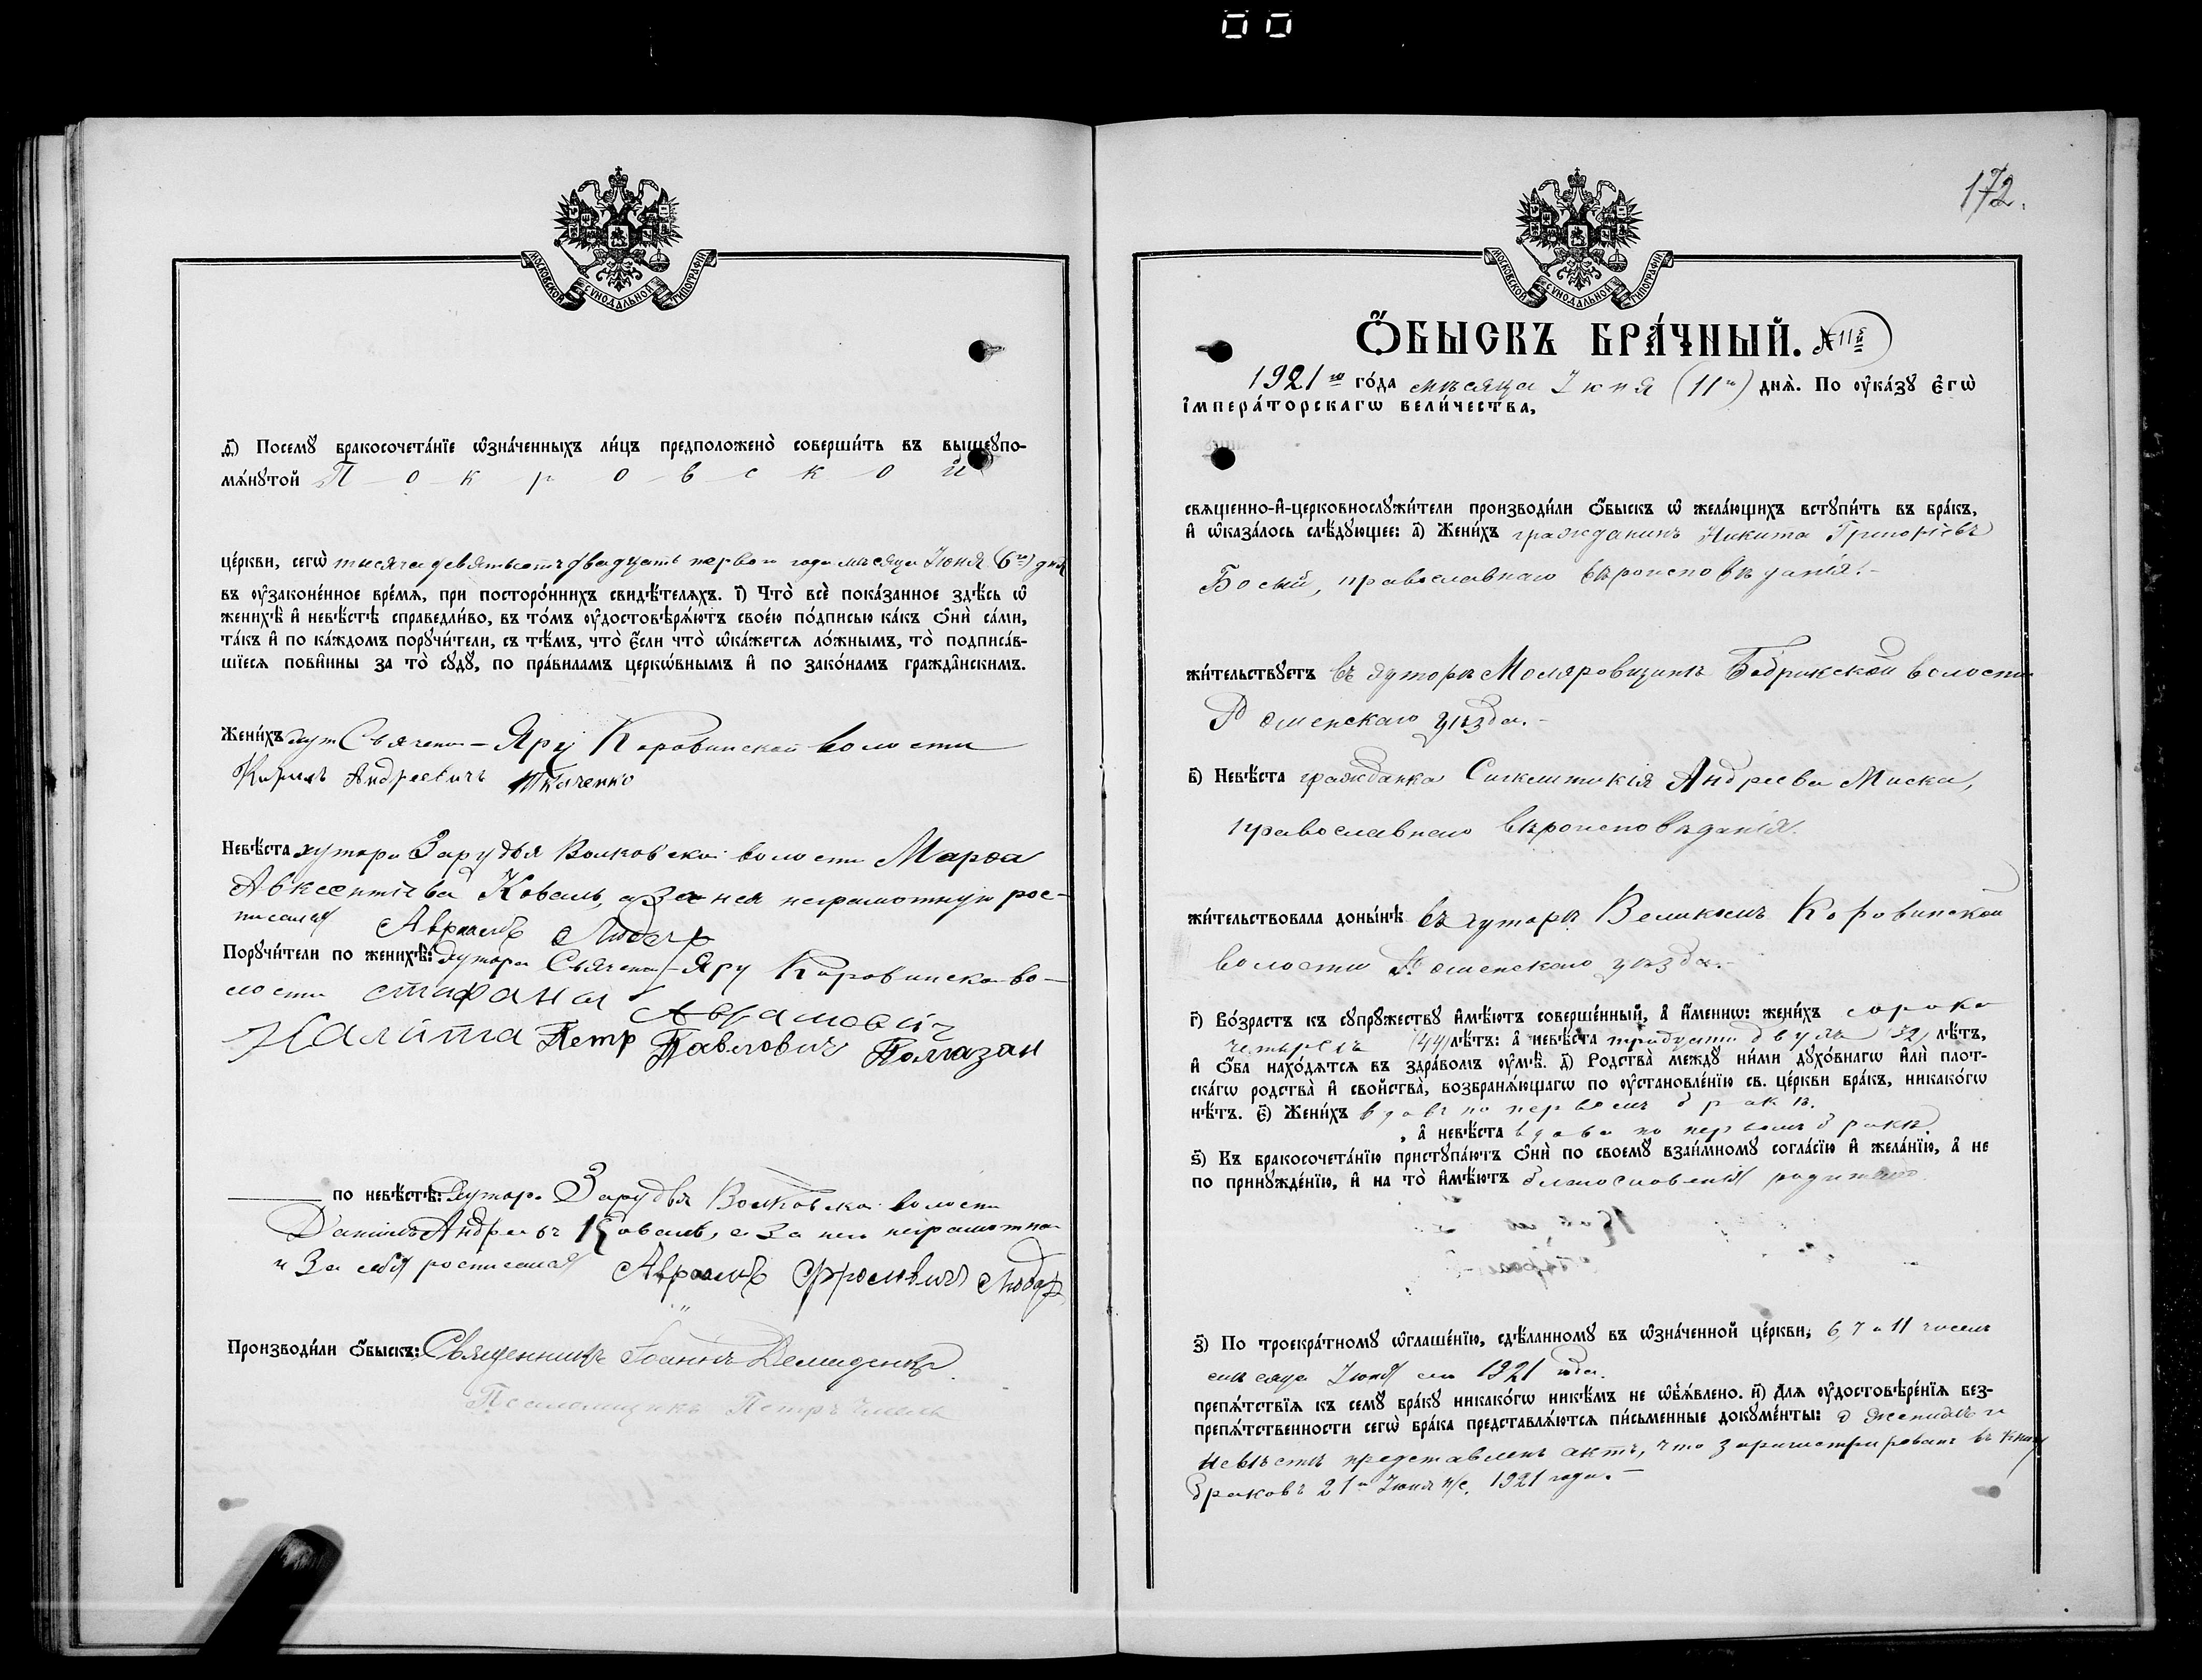 МОСКОВСКОЙ СѴНОДАЛЬНОЙ ТИПОГРАФІИ
ѳ҃) Посемꙋ̀ бракосочета́нїе ѡ҆зна́ченныхъ ли́цъ предположено̀ соверши́ть въ вышеꙋпо-
мѧ́нꙋтой Покровской
це́ркви, сегѡ̀ тысяча девятьсотъ двадцать перваго года мѣсяца Іюня (6го) дня
въ ᲂу҆зако́не́нное вре́мѧ, при посторо́ннихъ свидѣ́телѧхъ. і҃) Что̀ всѐ пока́занное здѣ́сь ѡ҆
женихѣ̀ и҆ невѣ́стѣ справедли́во, въ то́мъ ᲂу҆достовѣрѧ́ютъ свое́ю по́дписью ка́къ ѻ҆нѝ са́ми,
та́къ и҆ по ка́ждомъ порꙋчи́тели, съ тѣ́мъ, что̀ є҆́сли что̀ ѡ҆ка́жетсѧ ло́жнымъ, то̀ подписа́в-
шїесѧ пови́нны за то̀ сꙋдꙋ̀, по пра́виламъ церкѡ́внымъ и҆ по зако́намъ гражда́нскимъ.
Жени́хъ хут Свячено-Яру Коровинской волости
Кирилъ Андреевичъ Ткаченко
Невѣ́ста хутора Зарудья Волковской волости Марѳа
Авксентіева Коваль, а за нея неграмотную рос-
писался Авраамъ Лободар
Порꙋчи́тели по женихѣ̀: Хутора Свячено-Яру Коровинской во-
лости Стафана Аврамович
Калита Петр Павлович Полгазан
по невѣ́стѣ: Хутора Зарудья Волковской волости
Даніилъ Андреевъ Коваль, а за него неграмотнаго
и За себя росписался Авраамъ
Производи́ли ѻ҆́быскъ: Священникъ Іоаннъ Демиденко
Псаломщикъ Петръ
172.
МОСКОВСКОЙ СѴНОДАЛЬНОЙ ТИПОГРАФІИ
Ѻ҆́БЫСКЪ БРА́ЧНЫЙ. №11й
1921го го́да мѣсяца Іюня (11го) днѧ̀. По ᲂу҆ка́зꙋ є҆гѡ̀
і҆мпера́торскагѡ вели́чества,
свѧще́нно-и҆-церковнослꙋжи́тели производи́ли ѻ҆́быскъ ѡ҆ жела́ющихъ встꙋпи́ть въ бра́къ,
и҆ ѡ҆каза́лось слѣ́дꙋющее: а҃) Жени́хъ гражданинъ Никита Григоріевъ
Босый, православнаго вѣроисповѣданія.-
жи́тельствꙋетъ въ хуторѣ Моляровщинѣ Бобрикской волости
Роменскаго уѣзда.-
в҃) Невѣ́ста гражданка Синклитикія Андреева Миска,
православнаго вѣроисповѣданія.
жи́тельствовала доны́нѣ въ хуторѣ Великомъ Коровинской
волости Роменскаго уѣзда.-
г҃) Во́зрастъ къ сꙋпрꙋ́жествꙋ и҆мѣ́ютъ соверше́нный, а҆ и҆́меннѡ: жени́хъ сорока
четырехъ (44) лѣ́тъ: а҆ невѣ́ста тридцати двухъ (32) лѣ́тъ,
и҆ ѻ҆́ба нахо́дѧтсѧ въ здра́вомъ ᲂу҆мѣ̀. д҃) Родства̀ междꙋ ни́ми дꙋхо́внагѡ и҆лѝ плот-
ска́гѡ родства̀ и҆ свойства̀, возбранѧ́ющагѡ по ᲂу҆становле́нїю св. це́ркви бра́къ, никако́гѡ
нѣ́тъ. є҃) Жени́хъ вдовъ по первомъ бракѣ.
, а҆ невѣ́ста вдова по первомъ бракѣ.
ѕ҃) Къ бракосочета́нїю пристꙋпа́ютъ ѻ҆нѝ по своемꙋ̀ взаи́мномꙋ согла́сїю и҆ жела́нїю, а҆ не
по принꙋжде́нїю, и҆ на то̀ и҆мѣ́ютъ благословенія родителей
з҃) По троекра́тномꙋ ѡ҆глаше́нїю, сдѣ́ланномꙋ въ ѡ҆зна́ченной це́ркви, 6, 7 и 11 чиселъ
мѣсяца Іюня 1921 года.
препѧ́тствїѧ къ семꙋ̀ бра́кꙋ никако́гѡ никѣ́мъ не ѡ҆б̾ѧ́влено. и҃) Длѧ ᲂу҆достовѣре́нїѧ без-
препѧ́тственности сегѡ̀ бра́ка представлѧ́ютсѧ пи́сьменные докꙋме́нты: о женихѣ и
невѣстѣ представленъ актъ, что зарегистрированъ въ книгу
браковъ 21го Іюня н/с, 1921 года.-